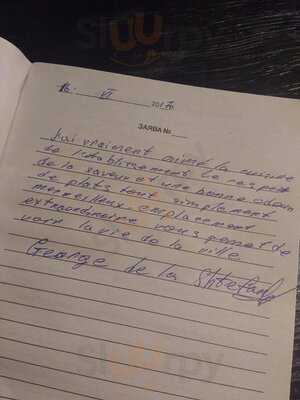 sluurpy
16. VI 2017г.
ЗАЯВА №
J'ai vraiment aimé la cuisine
de l'etablissement le respect
de la saveur et une bonne odeur
de plats tout simplement
merveilleux emplacement
extraordinaire vous permet de
voir la vie de la ville
George de la
sluurpy